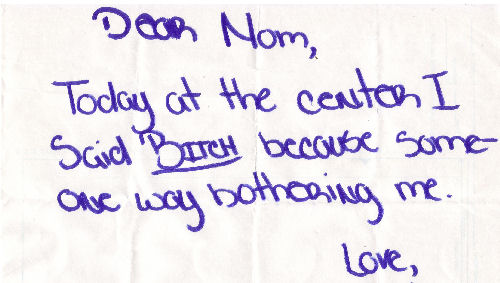 Dear Nom,
Today at the center I
Said "BITCH because some-
one way bothering me.
Love,